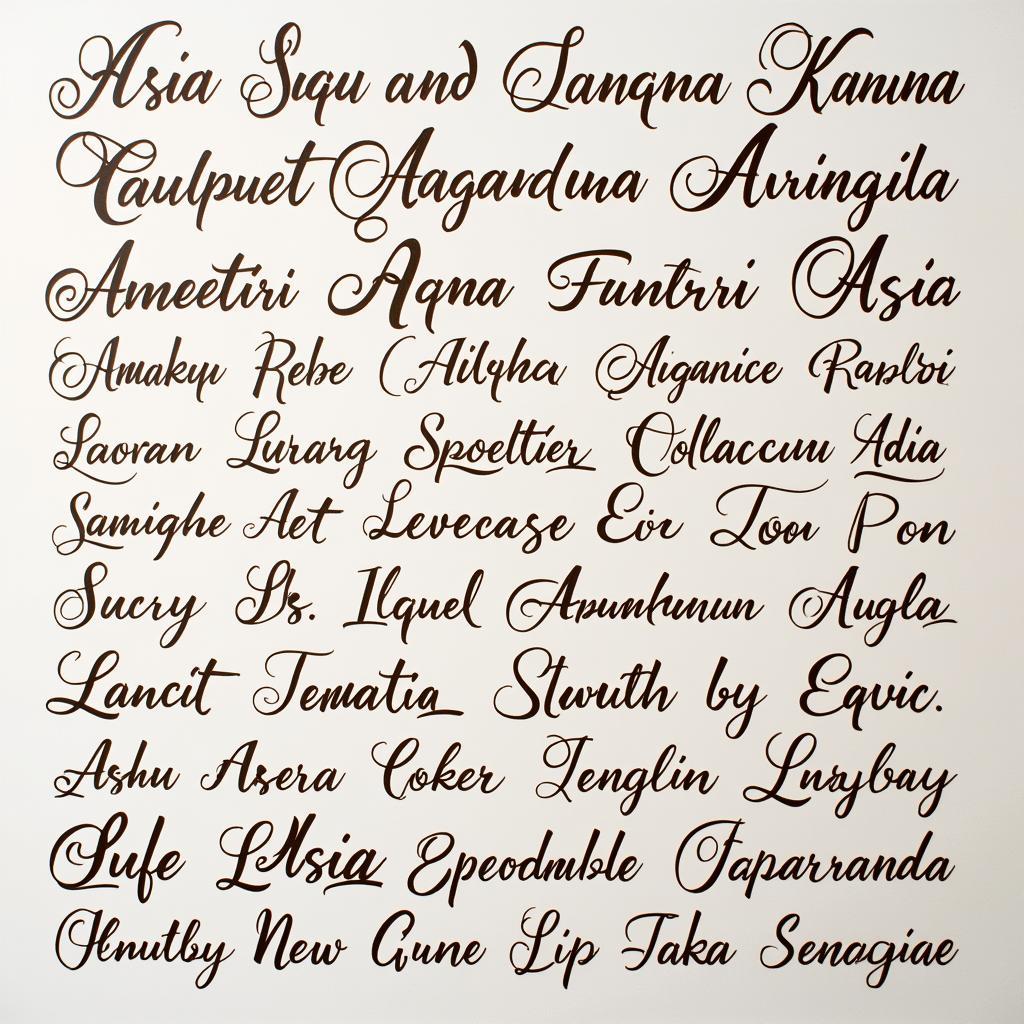 Asia Siqu and Sanqna Kanına
Caulpuet Aagardına Aıringila
Ameetiri Aqna Funtrri Asia
Amakyı Rebe Ailyha Aiganice
Laoran Lurarg Spoeltier Collaccuu Adia
Samighe Aet Levecase Eir Toor Pon
Sucry Ds. Ilquel Augla
Lancit Tematia Stwuth by Eqvic.
Ashu Asera Coker Jenglin
Lufe LMsia Epeodmble Taparranda
New Gune Lip Taka Senagiae